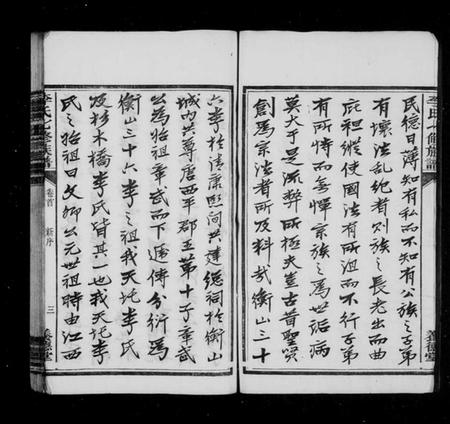 民德日薄知有私而不知有公族之子弟
有壞法乱纪者则族之長老出而曲
庇祖縱使國法有所沮而不行子弟
有所恃而無憚宗族之為世詬病
莫大于是流弊所極夫豈古昔聖賢
創為宗法者所及料哉衡山三十
六李於清康熙间共建總祠於衡山
城内共尊唐西平郡王第十子宪武
公為始祖宪武而下遞傳分衍為
衡山三十六李之祖我天坨李氏
及杉木橋李氏皆其一也我天坨李
氏之始祖曰文卿公元世祖時由江西
李氏七修族譜
卷首
新序
三